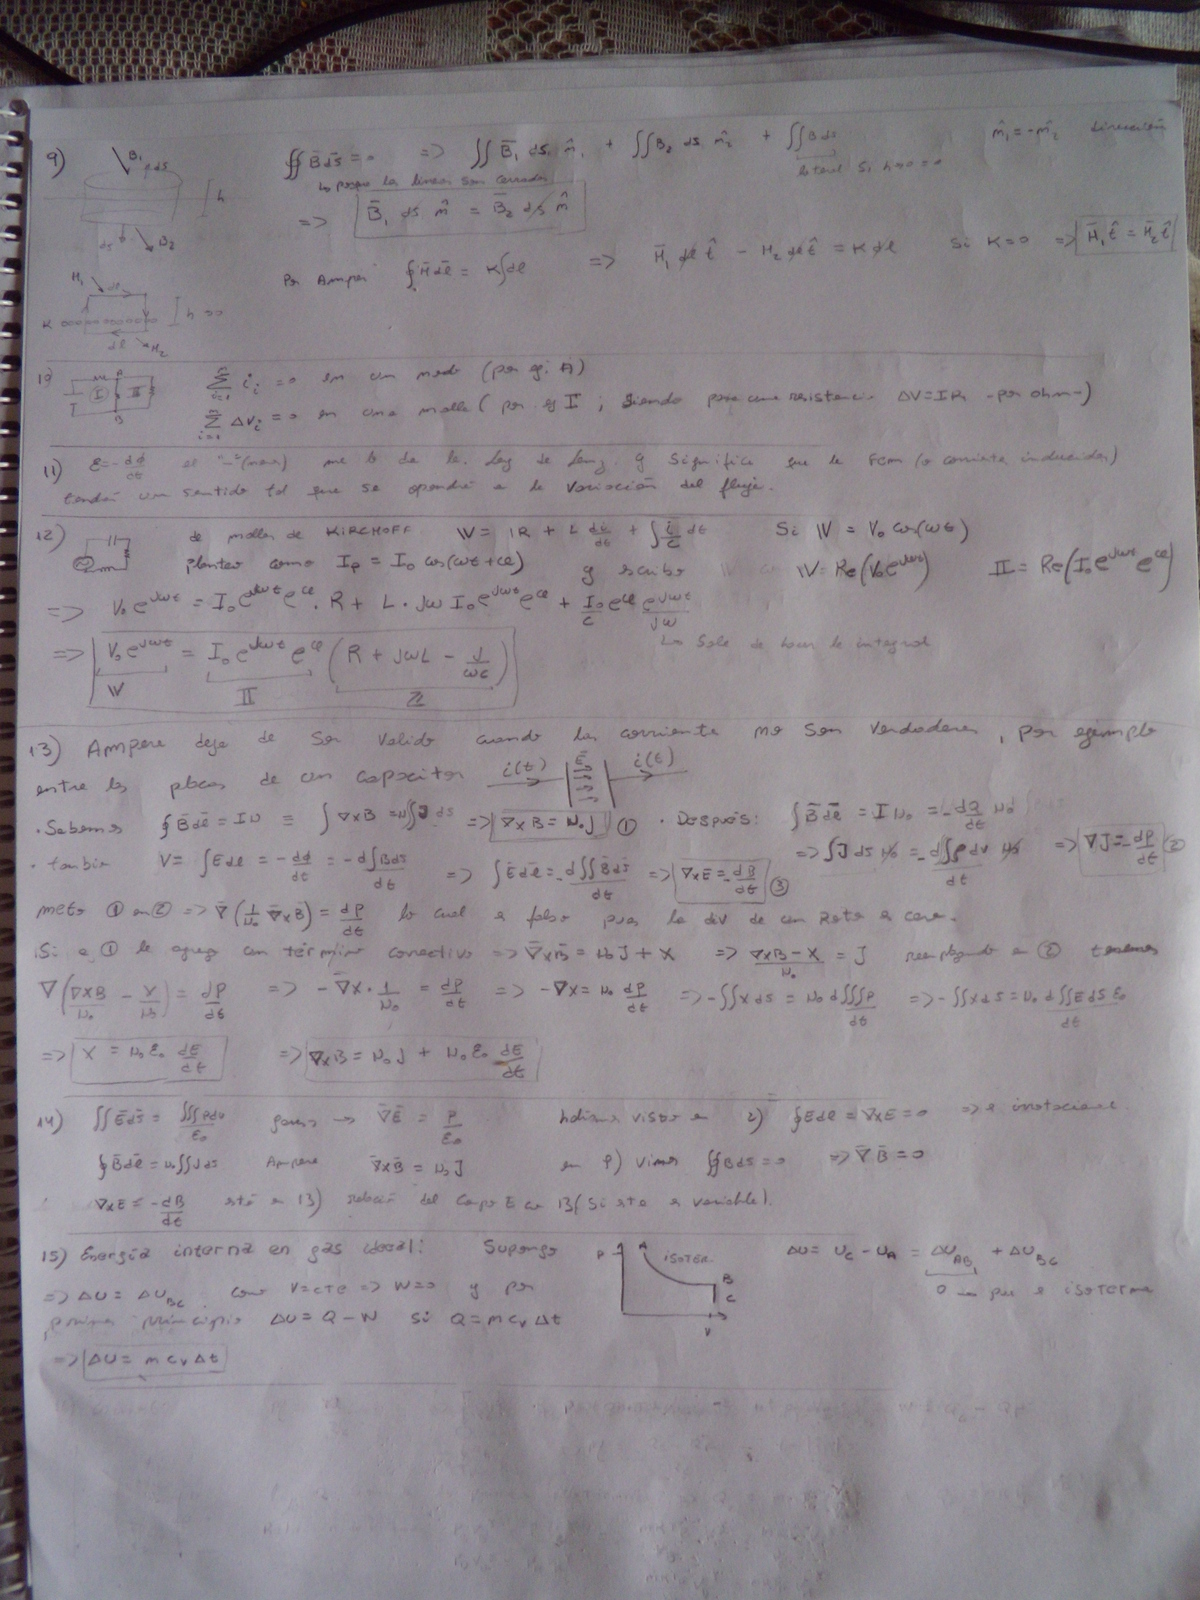 9) B₁ ds ∯ B̄ds̄=0 => ∬ B̄₁ ds₁ m̂₁ + ∬B₂ ds₂ m̂₂ + ∬B ds m̂₁=-m̂₂ dirección
↳ porque las lineas son cerradas lateral si h→0 =0
h => B̄₁ ds m̂ = B̄₂ ds m̂
ds B₂
H₁ dl Por Amper ∮H̄dl̄ = K∫dl => H̄₁ dl t̂ - H₂ dl t̂ = K dl Si K=0 => H̄₁t̂ = H̄₂t̂
K h→0
dl H₂
10) A I II B Σ i=1 n iᵢ =0 en un nodo (por ej: A)
Σ i=1 n ΔVᵢ =0 en una malla ( por ej I ; siendo para una resistencia ΔV=IR -por ohm-)
11) ε=-dφ/dt el "-" me lo da la Ley de Lenz y significa que la Fem (o corriente inducida)
tendrá un sentido tal que se opondrá a la variación del flujo.
12) de mallas de KIRCHOFF V = IR + L di/dt + ∫i/C dt Si V = V₀ cos(ωt)
planteo como Iₚ = I₀ cos(ωt+φ) y escribo V=Re(V₀e^jωt) I = Re(I₀e^jωt e^φ)
=> V₀e^jωt = I₀e^jωt e^φ . R + L . jω I₀e^jωt e^φ + I₀/C e^φ e^jωt/jω
↳ sale de hacer la integral
=> V₀e^jωt = I₀e^jωt e^φ (R + jωL - j/ωC)
V I Z
13) Ampere deja de ser valido cuando las corriente no son verdaderas, por ejemplo
entre las placas de un capacitor i(t) E i(t)
• Sabemos ∮B̄dl̄ = Iμ = ∫∇xB = μ∬J ds => ∇xB = μ₀J ① • Después: ∫B̄dl̄ = I μ₀ = -dQ/dt μ₀
• tambien V= ∫Edl = -dφ/dt = -d∫Bds/dt => ∫Ēdl̄ = -d∬B̄ds̄/dt => ∇xE = -dB̄/dt ③ => ∫J ds μ₀ = -d∫ρdv μ₀/dt => ∇J=-dρ/dt ②
meto ① en ② => ∇̄(1/μ₀ ∇̄xB̄) = dρ/dt lo cual es falso pues la div de un Rotor es cero.
Si a ① le agrego un término correctivo => ∇̄xB̄ = μ₀J + X => ∇xB - X/μ₀ = J reemplazando en ② tenemos
∇(∇xB/μ₀ - X/μ₀) = dρ/dt => -∇̄X . 1/μ₀ = dρ/dt => -∇X = μ₀ dρ/dt => -∬X ds = μ₀ d∭ρ/dt => -∬X ds = μ₀ d∬E ds ε₀/dt
=> X = μ₀ε₀ dE/dt => ∇xB = μ₀J + μ₀ε₀ dE/dt
14) ∬Ēds̄ = ∭ρdv/ε₀ gauss → ∇̄Ē = ρ/ε₀ habiamos visto en 2) ∮Edl = ∇xE = 0 => es irrotacional.
∮B̄dl̄ = μ₀∬Jds Ampere ∇̄xB̄ = μ₀J en 9) vimos ∯Bds =0 => ∇̄ B̄ = 0
∇xE = -dB/dt está en 13) relación del campo E con B (si esta es variable).
15) Energía interna en gas ideal: Supongo P A ISOTER. B C V ΔU = U_C - U_A = ΔU_AB + ΔU_BC
=> ΔU = ΔU_BC como V=cte => W=0 y por 0 → pues es isoterma
primer principio ΔU = Q - W si Q = m cᵥ Δt
=> ΔU = m cᵥ Δt